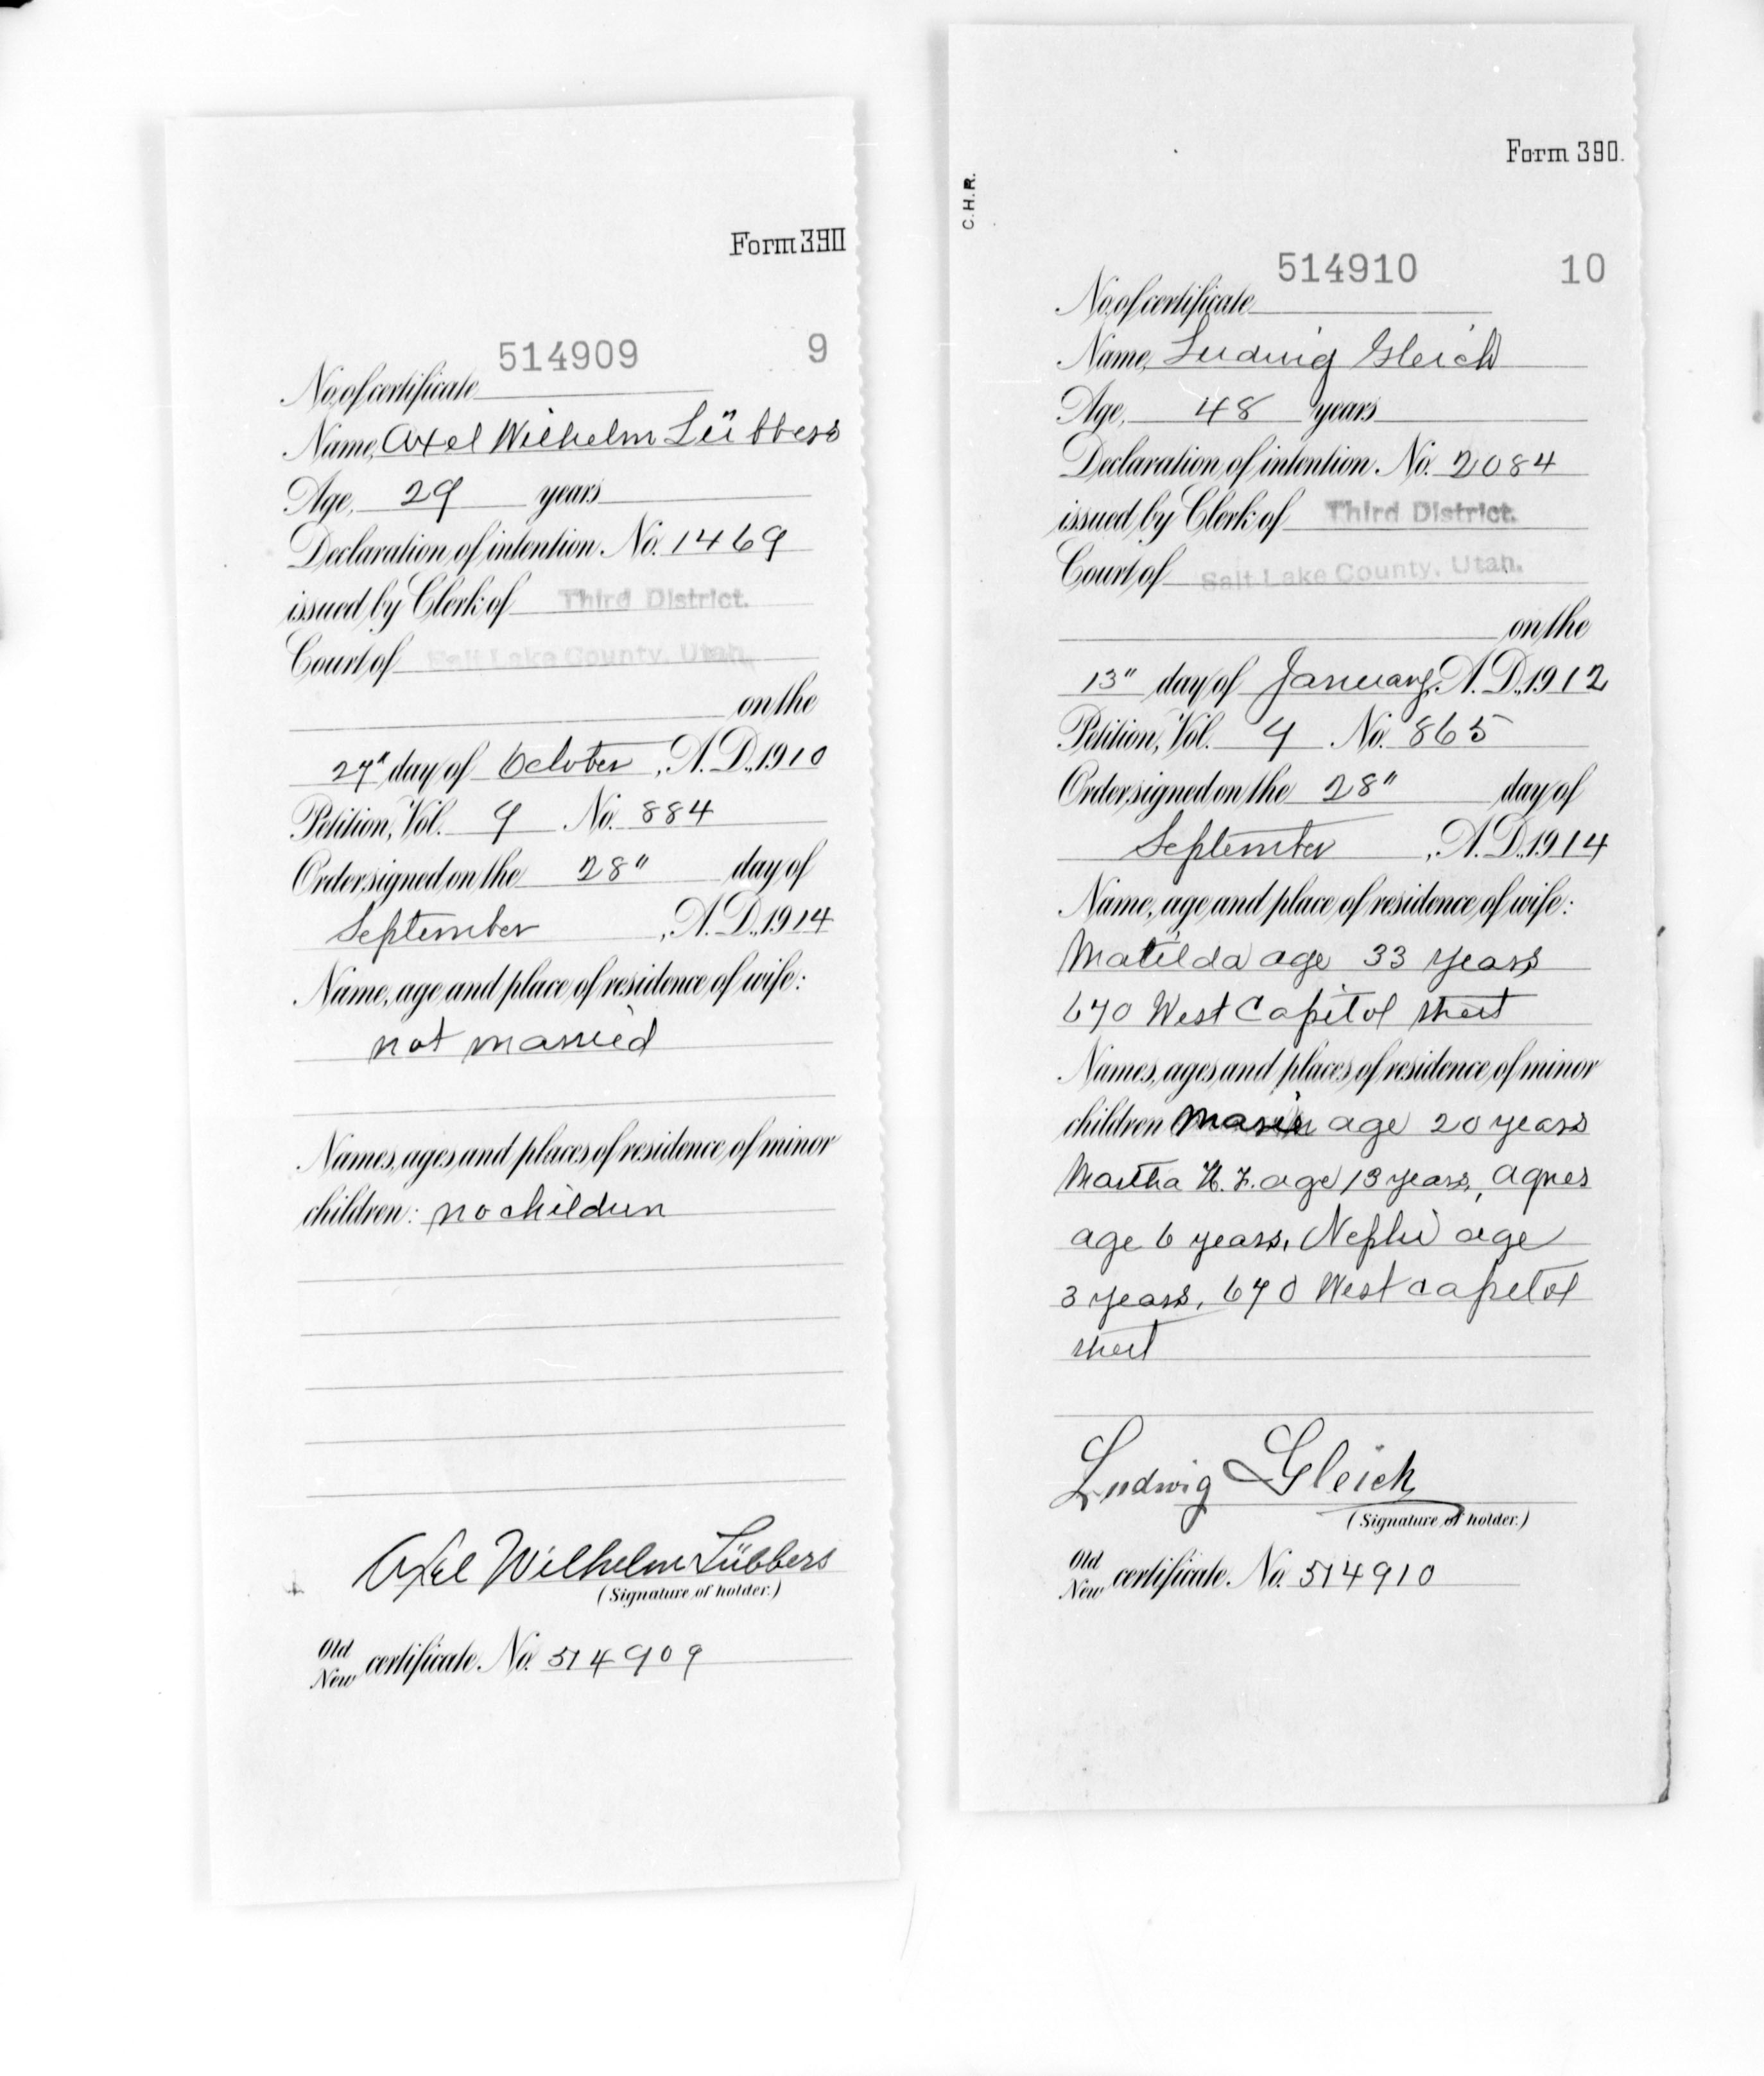 Form 390
514909 9
No. of certificate
Name, Axel Wilhelm Lübbers
Age, 29 years
Declaration of intention No. 1469
issued by Clerk of Third District.
Court of Salt Lake County, Utah.
on the
27" day of October, A.D., 1910
Petition, Vol. 9 No. 884
Order signed on the 28" day of
September, A.D., 1914
Name, age and place of residence of wife:
not married
Names, ages and places of residence of minor
children: no children
Axel Wilhelm Lübbers
(Signature of holder.)
Old
New certificate No. 514909
Form 390.
C.H.R.
514910 10
No. of certificate
Name, Ludwig Gleich
Age, 48 years
Declaration of intention No. 2084
issued by Clerk of Third District.
Court of Salt Lake County, Utah.
on the
13" day of January, A.D., 1912
Petition, Vol. 9 No. 865
Order signed on the 28" day of
September, A.D., 1914
Name, age and place of residence of wife:
Matilda age 33 years
670 West Capitol street
Names, ages and places of residence of minor
children age 20 years
Martha H. F. age 13 years, Agnes
age 6 years, Nephi age
3 years, 670 West Capitol
street
Ludwig Gleich
(Signature of holder.)
Old
New certificate No. 514910